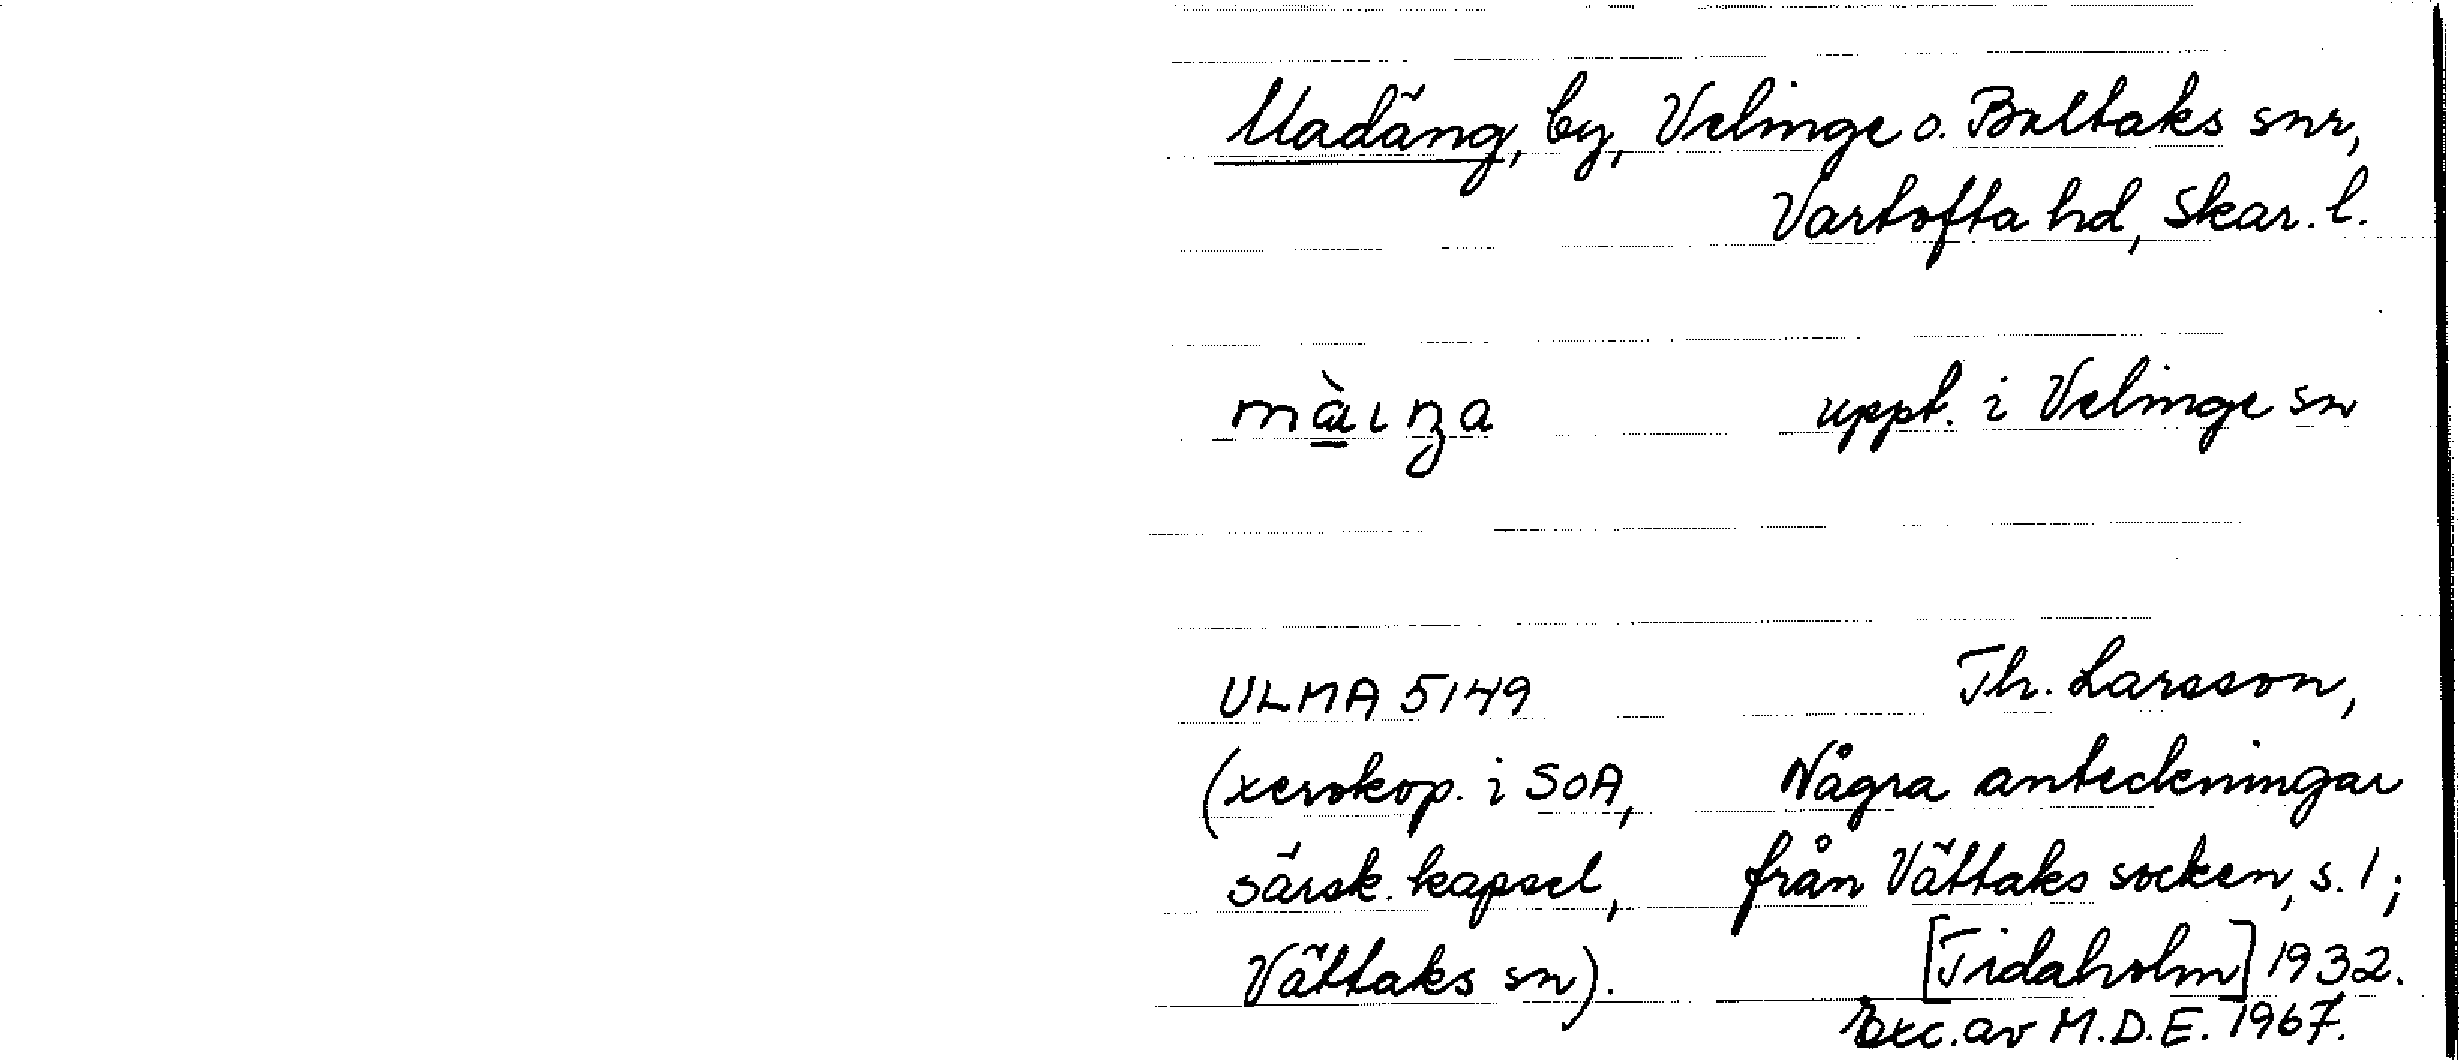 Madäng, by, Velinge o. Baltaks snr,
Vartofta hd, Skar. l.
uppt. i Velinge sn
ULMA 5149
Th. Larsson,
(xerokop. i SOA,
Några anteckningar
särsk. kapsel,
från Vättaks socken, s. 1;
Vättaks sn).
[Tidaholm] 1932.
Exc. av M.D.E. 1967.